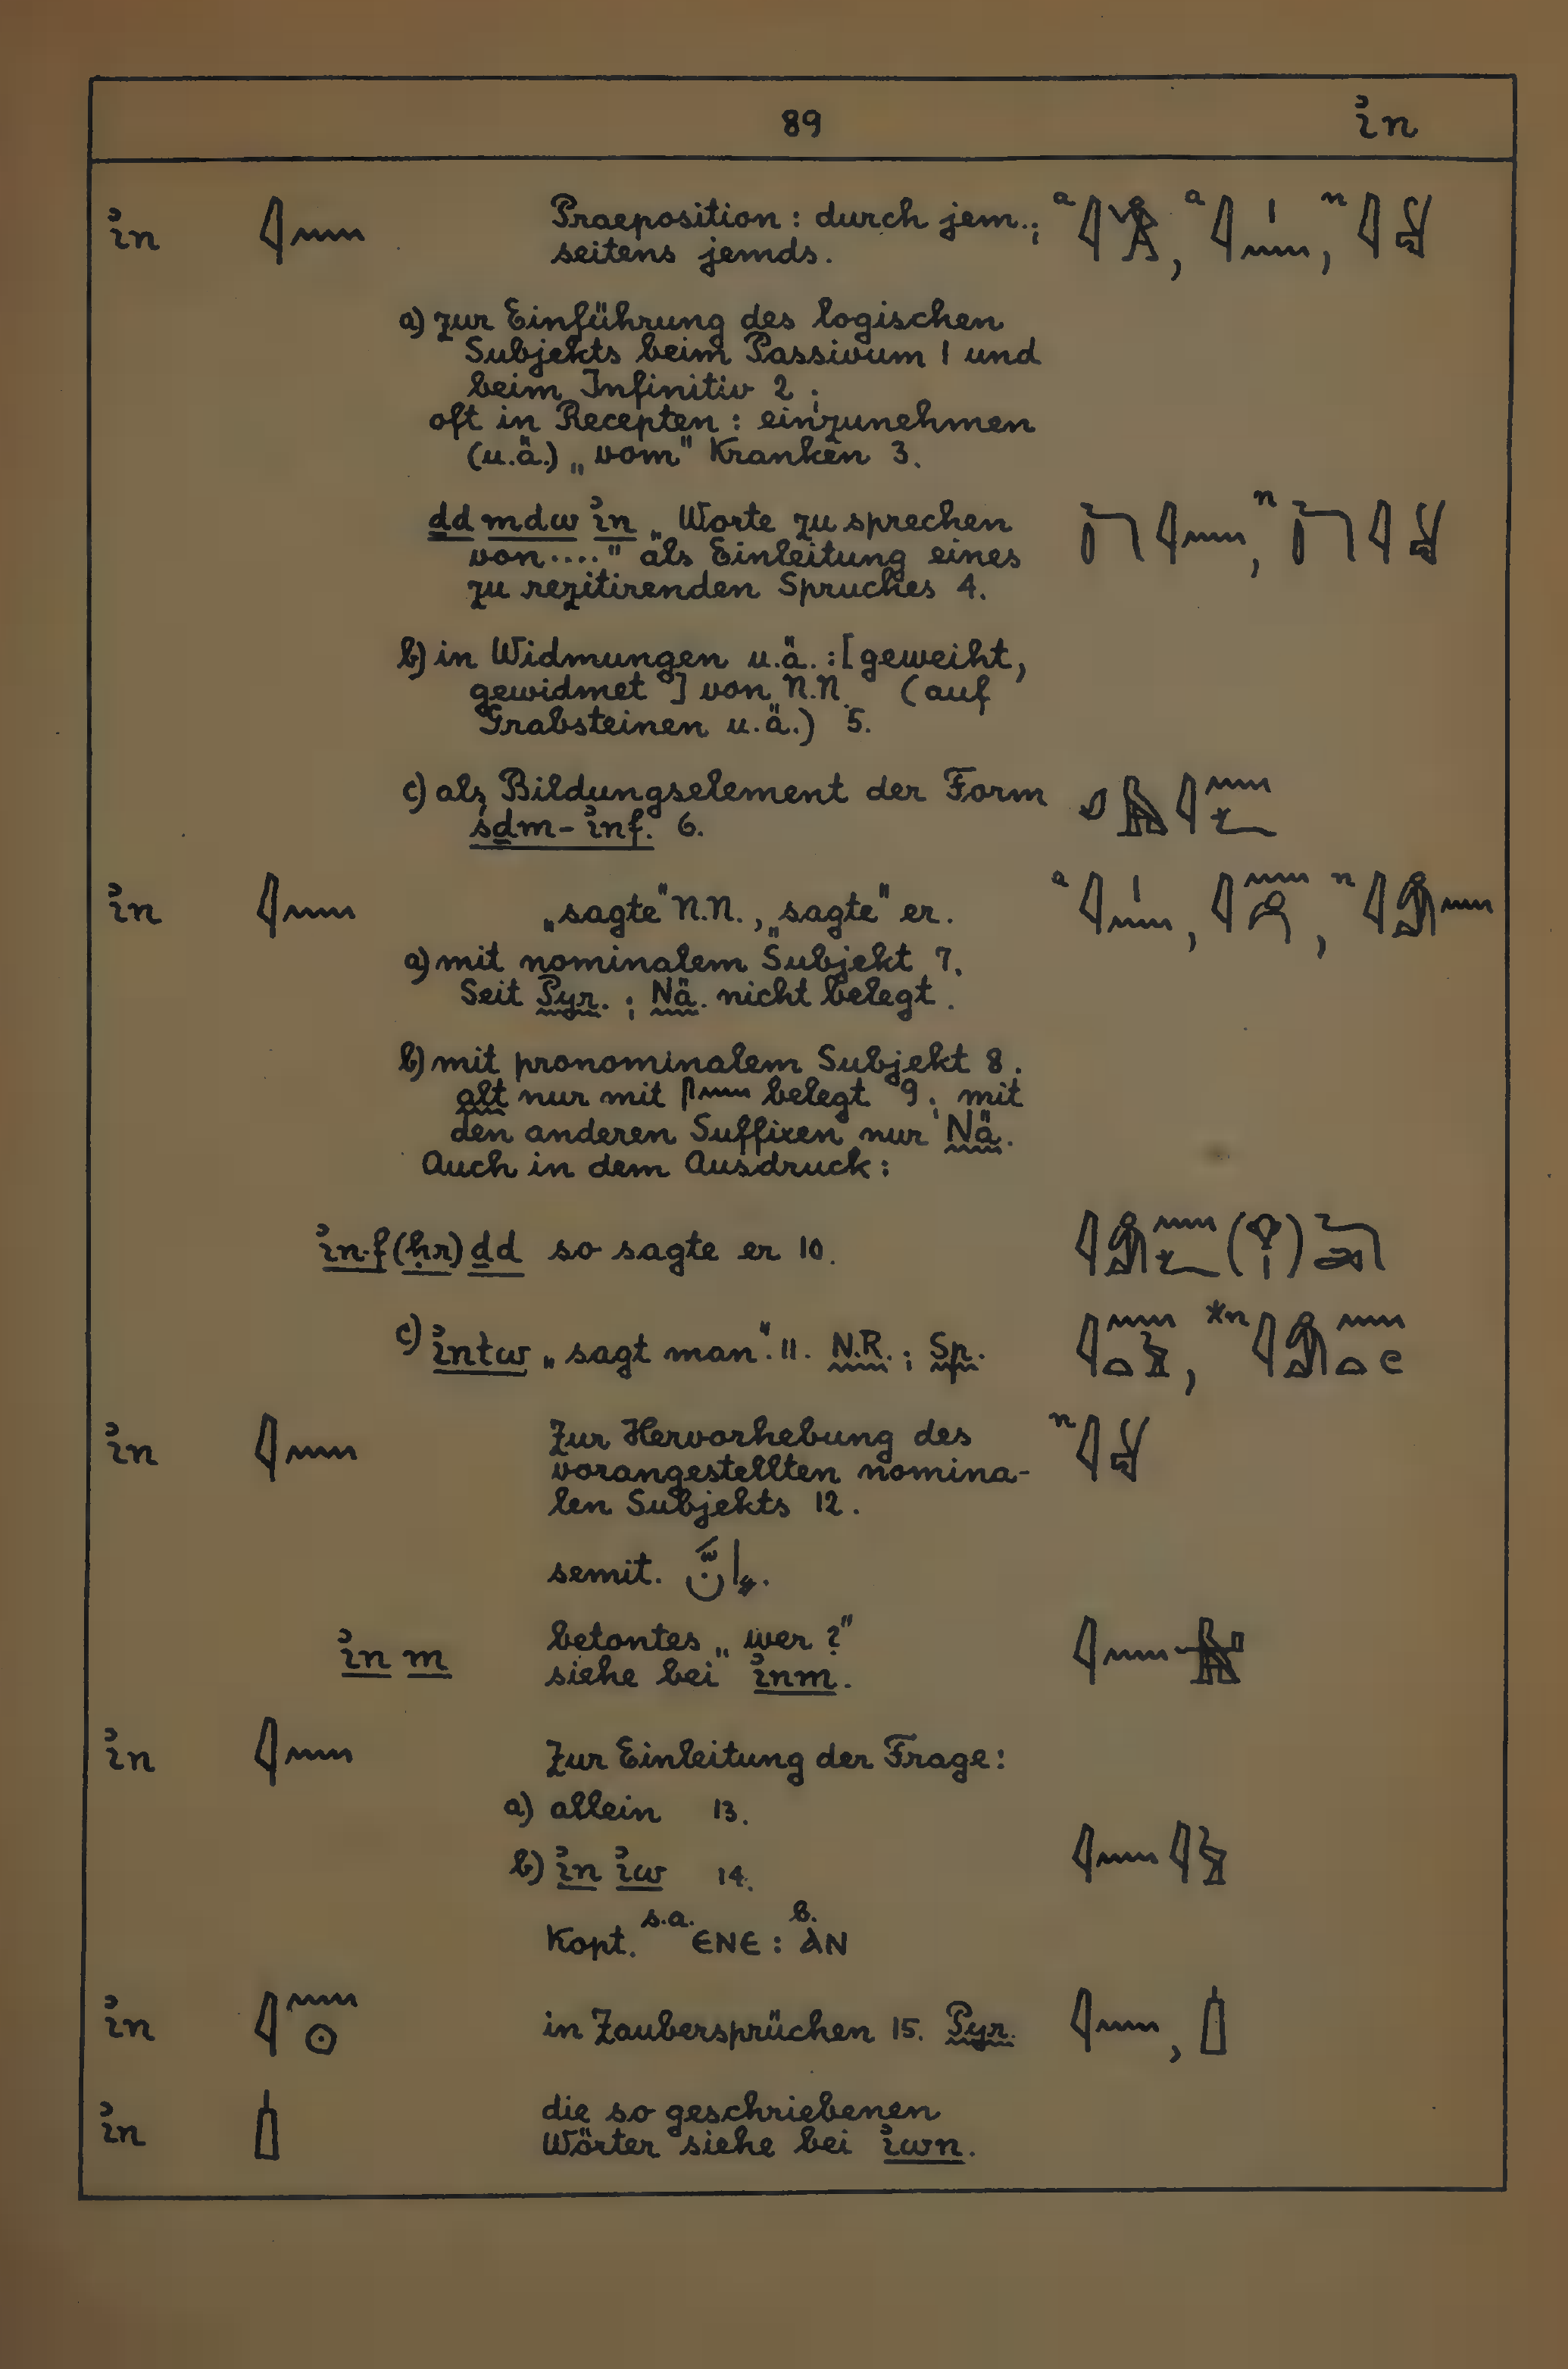 89 ı͗n
ı͗n 𓇋𓈖 Praeposition: durch jem.;
seitens jemds.
a) zur Einführung des logischen
Subjekts beim Passivum 1 und
beim Infinitiv 2;
oft in Recepten: einzunehmen
(u.ä.) „vom" Kranken 3.
ḏd mdw ı͗n „Worte zu sprechen
von...." als Einleitung eines
zu rezitirenden Spruches 4.
b) in Widmungen u.ä.: [geweiht,
gewidmet] von N.N. (auf
Grabsteinen u.ä.) 5.
c) als Bildungselement der Form
śḏm-ı͗nf. 6.
ı͗n 𓇋𓈖 „sagte" N.N., „sagte" er.
a) mit nominalem Subjekt 7.
Seit Pyr.; Nä. nicht belegt.
b) mit pronominalem Subjekt 8.
alt nur mit 𓋴𓈖 belegt 9; mit
den anderen Suffixen nur Nä.
Auch in dem Ausdruck:
ı͗n.f (ḥr) ḏd so sagte er 10.
c) ı͗ntw „sagt man". 11. N.R.; Sp.
ı͗n 𓇋𓈖 Zur Hervorhebung des
vorangestellten nomina-
len Subjekts 12.
semit. إنَّ.
ı͗n m betontes „wer?"
siehe bei ı͗nm.
ı͗n 𓇋𓈖 Zur Einleitung der Frage:
a) allein 13.
b) ı͗n ı͗w 14. 𓇋𓈖𓇋𓅱
Kopt. s.a. ⲉⲛⲉ : b. ⲁⲛ
ı͗n 𓇋𓈖𓇳 in Zaubersprüchen 15. Pyr. 𓇋𓈖, 𓉺
ı͗n 𓉺 die so geschriebenen
Wörter siehe bei ı͗wn.